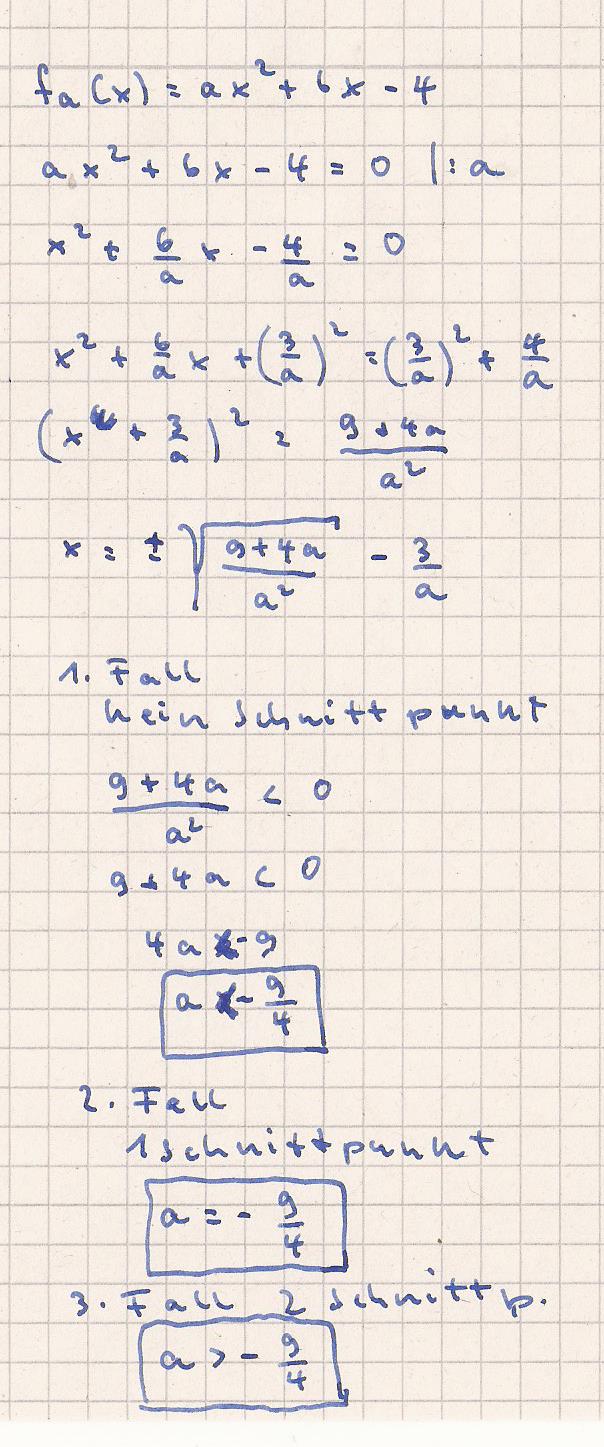 fa(x) = ax² + 6x - 4
ax² + 6x - 4 = 0 |: a
x² + 6/a x - 4/a = 0
x² + 6/a x + (3/a)² = (3/a)² + 4/a
(x + 3/a)² = (9 + 4a)/a²
x = ± √((9 + 4a)/a²) - 3/a
1. Fall
kein Schnittpunkt
(9 + 4a)/a² < 0
9 + 4a < 0
4a < - 9
a < - 9/4
2. Fall
1 Schnittpunkt
a = - 9/4
3. Fall 2 Schnittp.
a > - 9/4